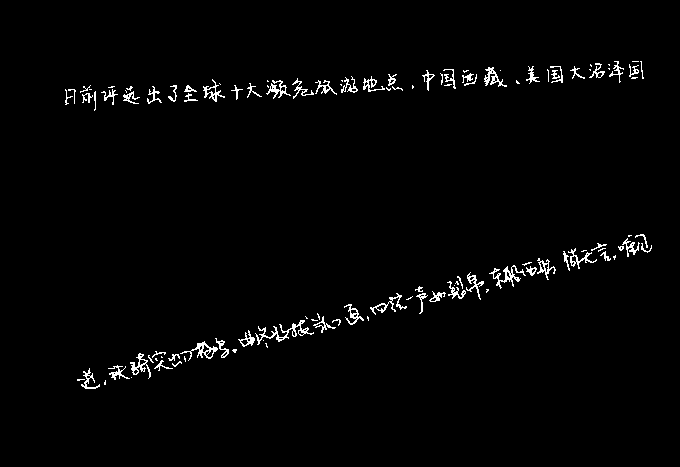 日前评选出了全球十大濒危旅游地点,中国西藏、美国大沼泽国
迸,铁骑突出刀枪鸣。曲终收拨当心画,四弦一声如裂帛。东船西舫悄无言,唯见